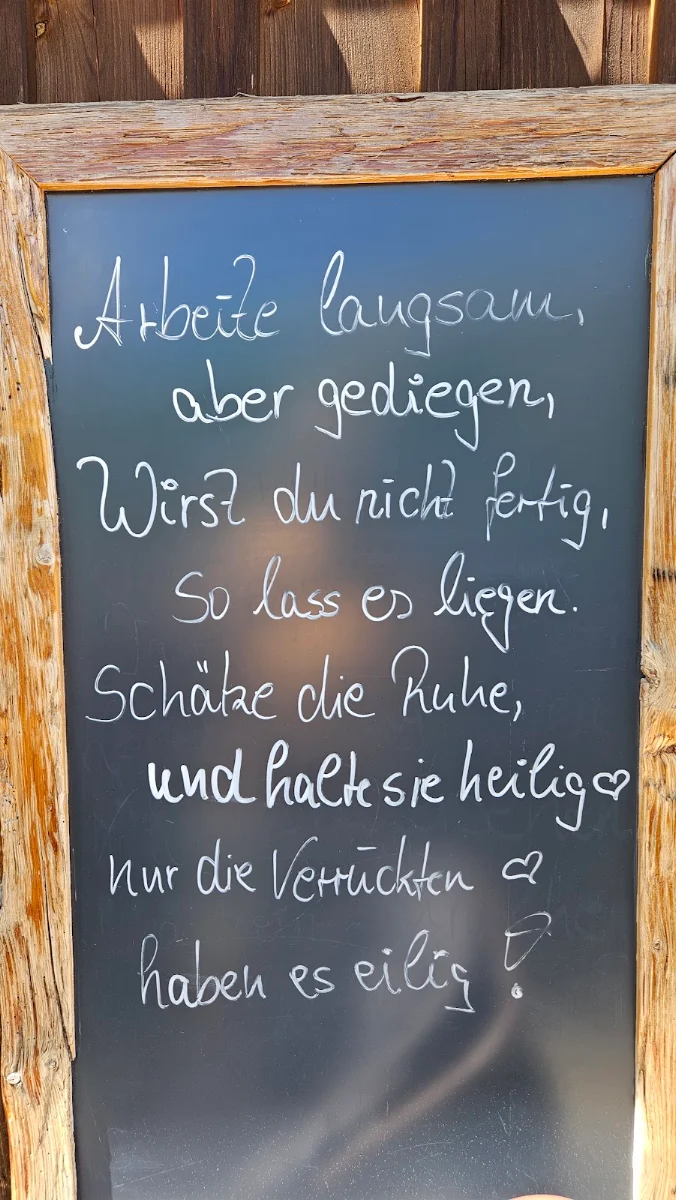 Arbeite langsam,
aber gediegen,
Wirst du nicht fertig,
So lass es liegen.
Schätze die Ruhe,
und halte sie heilig ♡
nur die Verrückten ♡
haben es eilig!